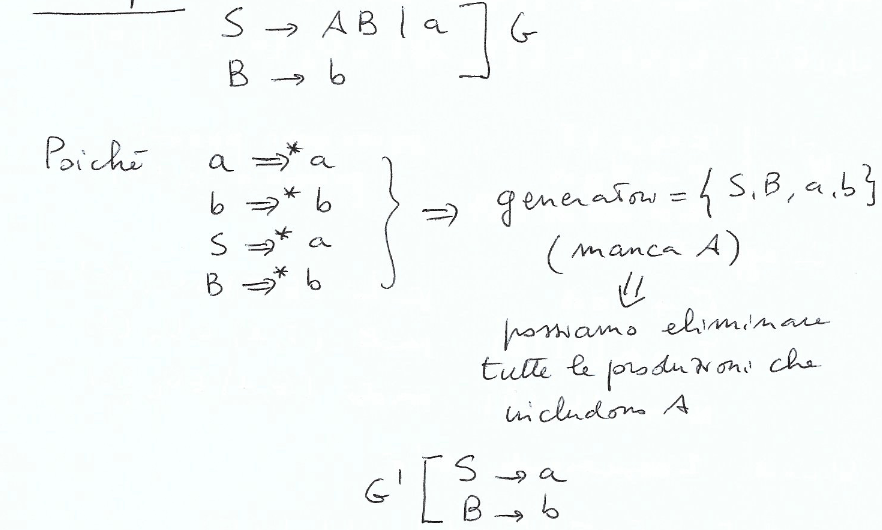 S → AB | a ] G
B → b
Poiché a ⇒* a
b ⇒* b
S ⇒* a
B ⇒* b
} ⇒ generatori = { S, B, a, b }
(manca A)
⇓
possiamo eliminare
tutte le produzioni che
includono A
G' [ S → a
B → b